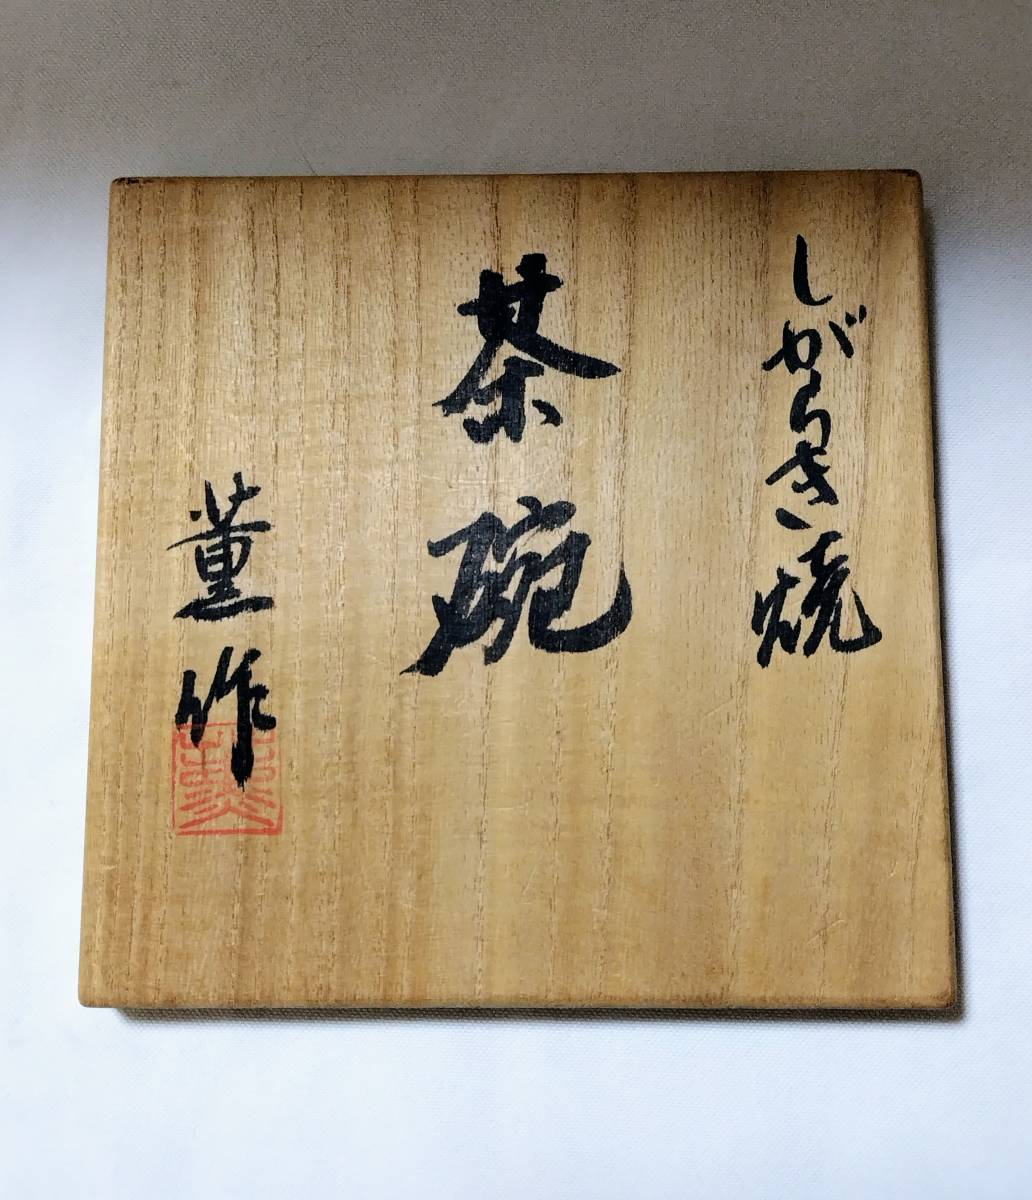 しがらき焼
茶碗
薫作